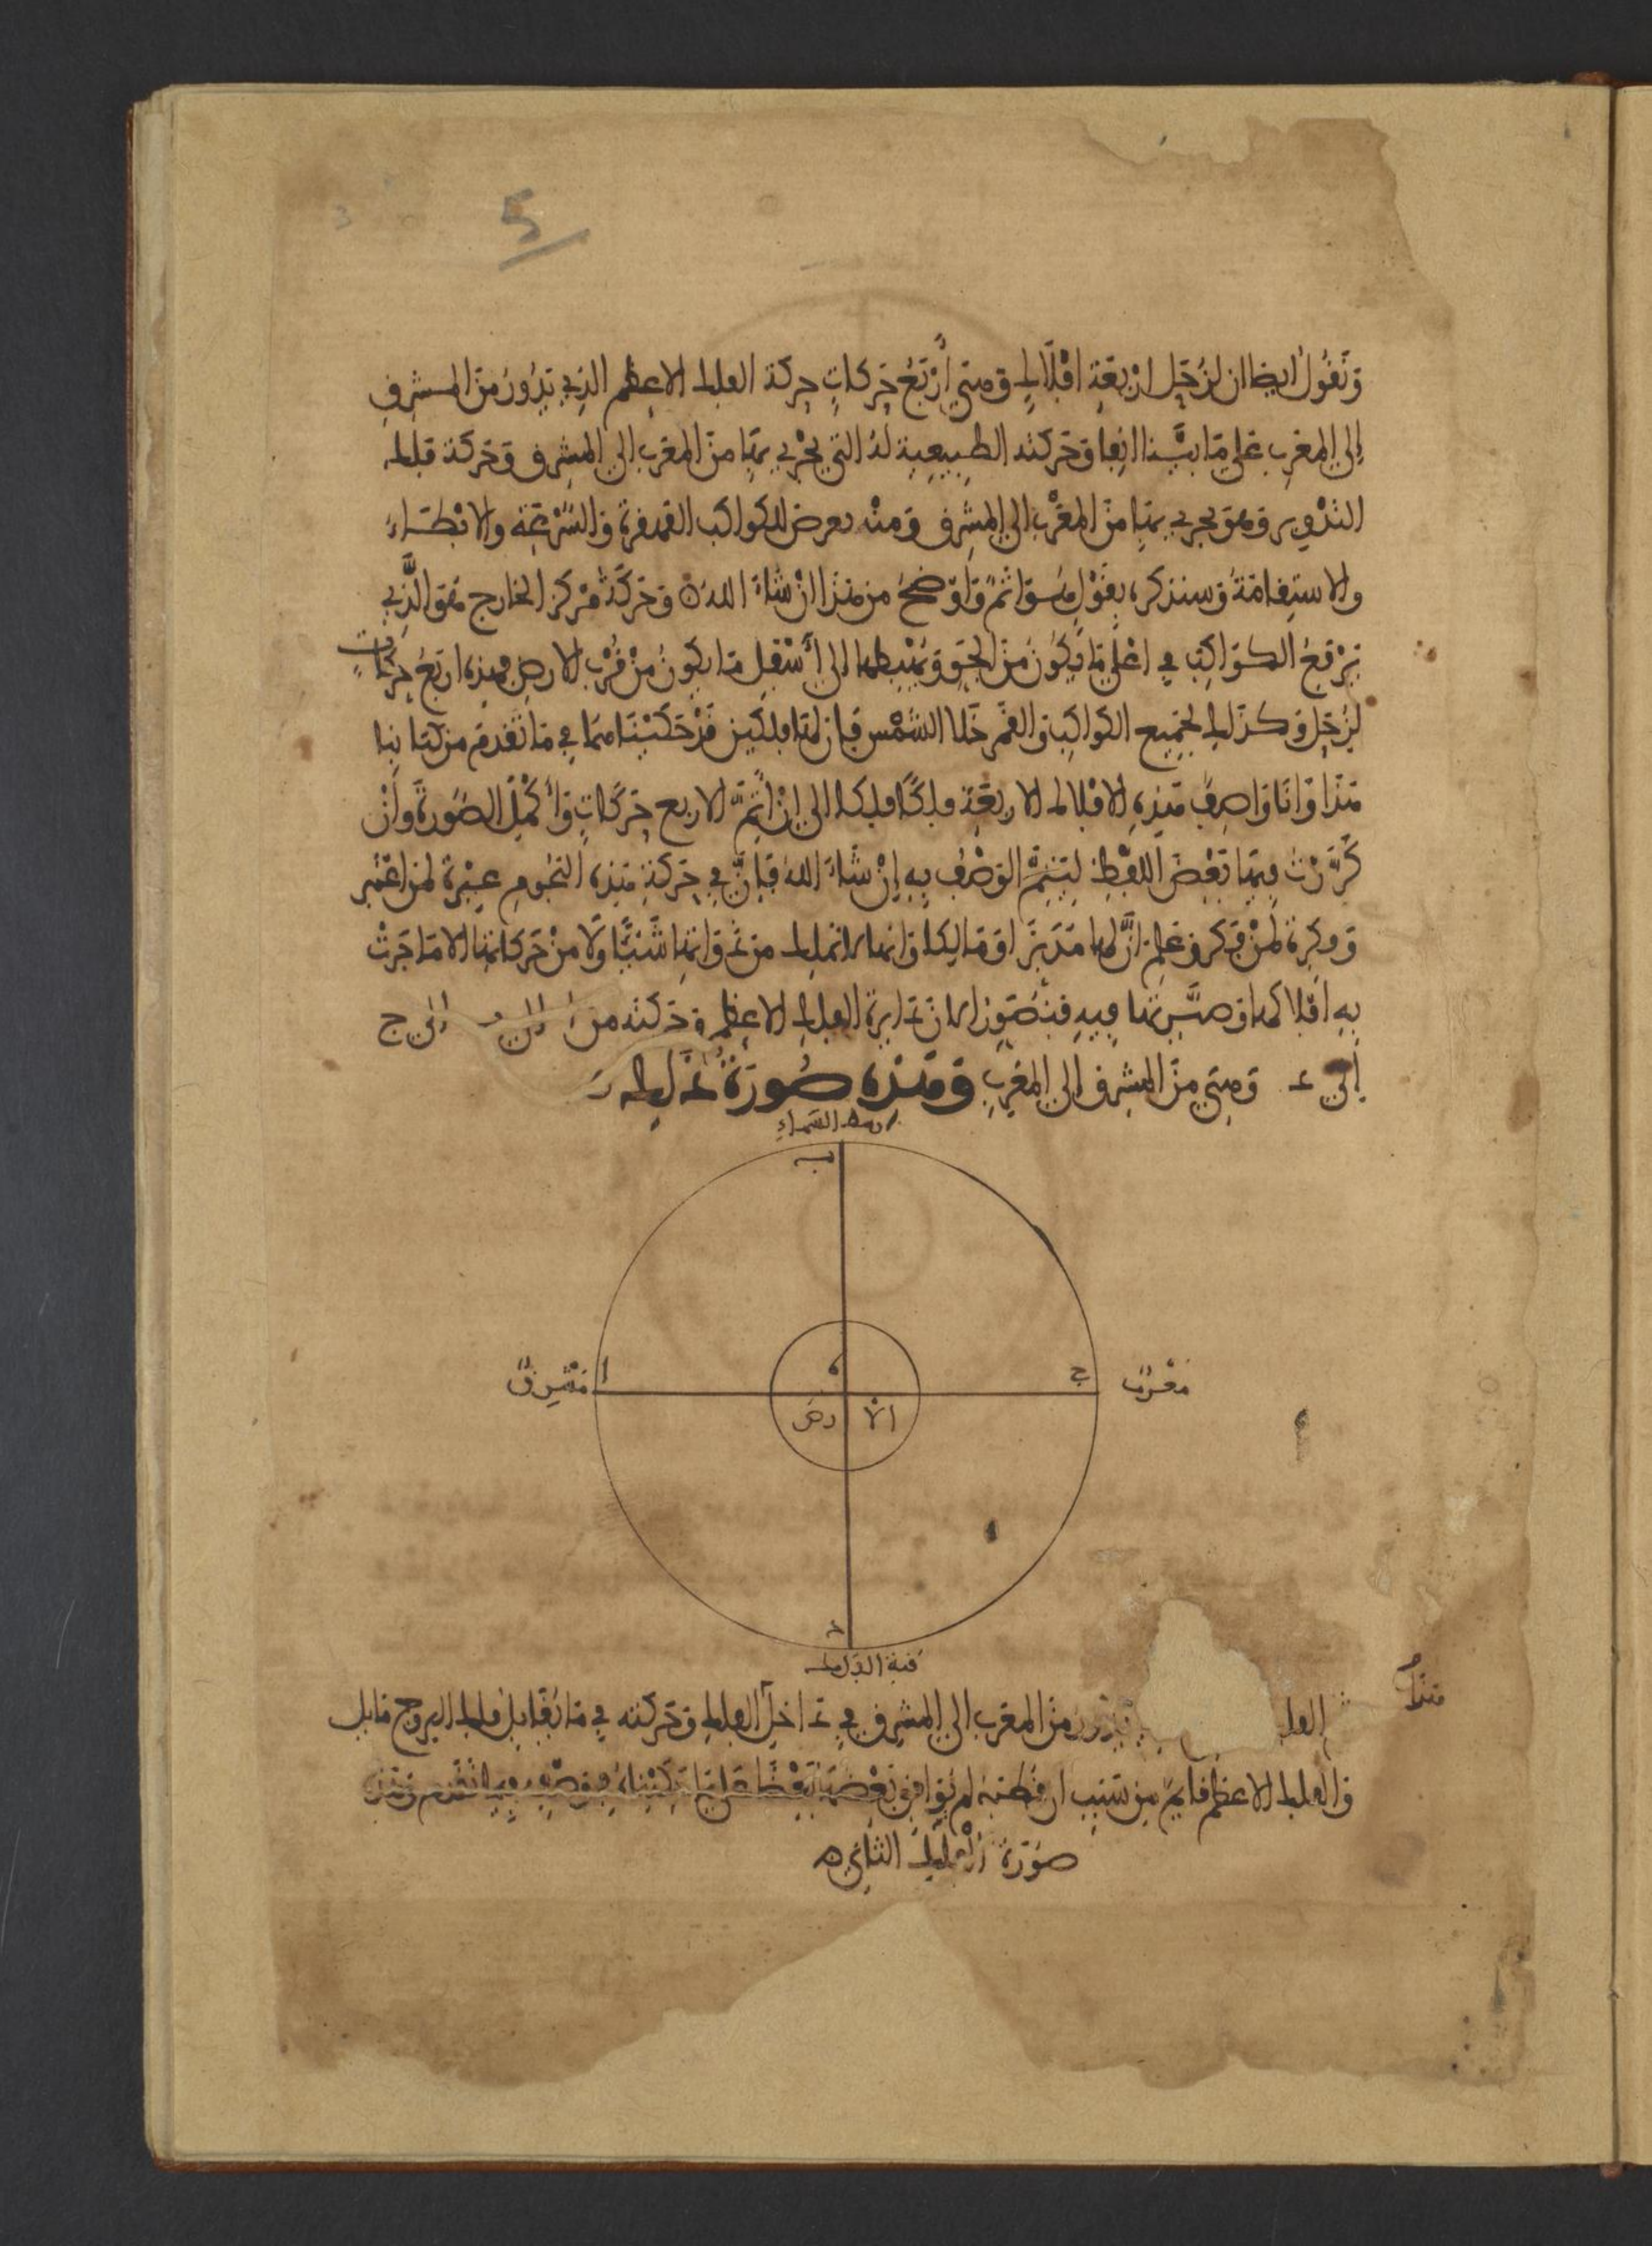 5
ونقول ايضا ان لزحل اربعة افلاك وهي اربع حركات حركة الفلك الاعظم الذي يدور من المشرق
إلى المغرب على ما بيّنا انفا وحركته الطبيعية له التي يجري بها من المغرب الى المشرق وحركة فلك
التدوير وهو يجري بها من المغرب الى المشرق ومنه يعرض للكواكب القهقرة والسرعة والابطاء
والاستقامة وسنذكره بقول هو اتم واوضح من هذا ان شاء الله وحركة مركز الخارج هو الذي
يرفع الكواكب في اعلى ما يكون من الجو ويهبطها الى أسفل ما يكون من قرب الارض فهذه اربع حركات
لزحل وكذلك لجميع الكواكب والقمر خلا الشمس فإن لها فلكين قد حكيناهما في ما تقدم من كتابنا
هذا وانا واصف هذه الافلاك الاربعة فلكا فلكا الى ان اتمّ الاربع حركات وأكمل الصورة وان
كرّرت فيها بعض اللفظ ليتم الوصف به إن شاء الله فإنّ في حركة هذه النجوم عبرة لمن اعتبر
وفكرة لمن فكر وعلم انّ لها مدبرا ومالكا وانها لا تملك من ذواتها شيئا ولا من حركاتها الا ما جرت
به افلاكها وصيّرتها فيه فنصور الان دايرة الفلك الاعظم وحركته من ا الى ب الى ج
إلى د وهي من المشرق إلى المغرب وهذه صورة ذلك
وسط السماء
ب
مشرق ا ه ج مغرب
الارض
د
قبة الفلك
هذا
الفلك يدور من المغرب الى المشرق في داخل الفلك وحركته في ما يقابل فلك البروج مايل
والفلك الاعظم قايم من سبب ان قطبه لم يوافق بعضها بعضا على ما حكيناه في وصف فيما تقدم وهذه
صورة الفلك الثاني